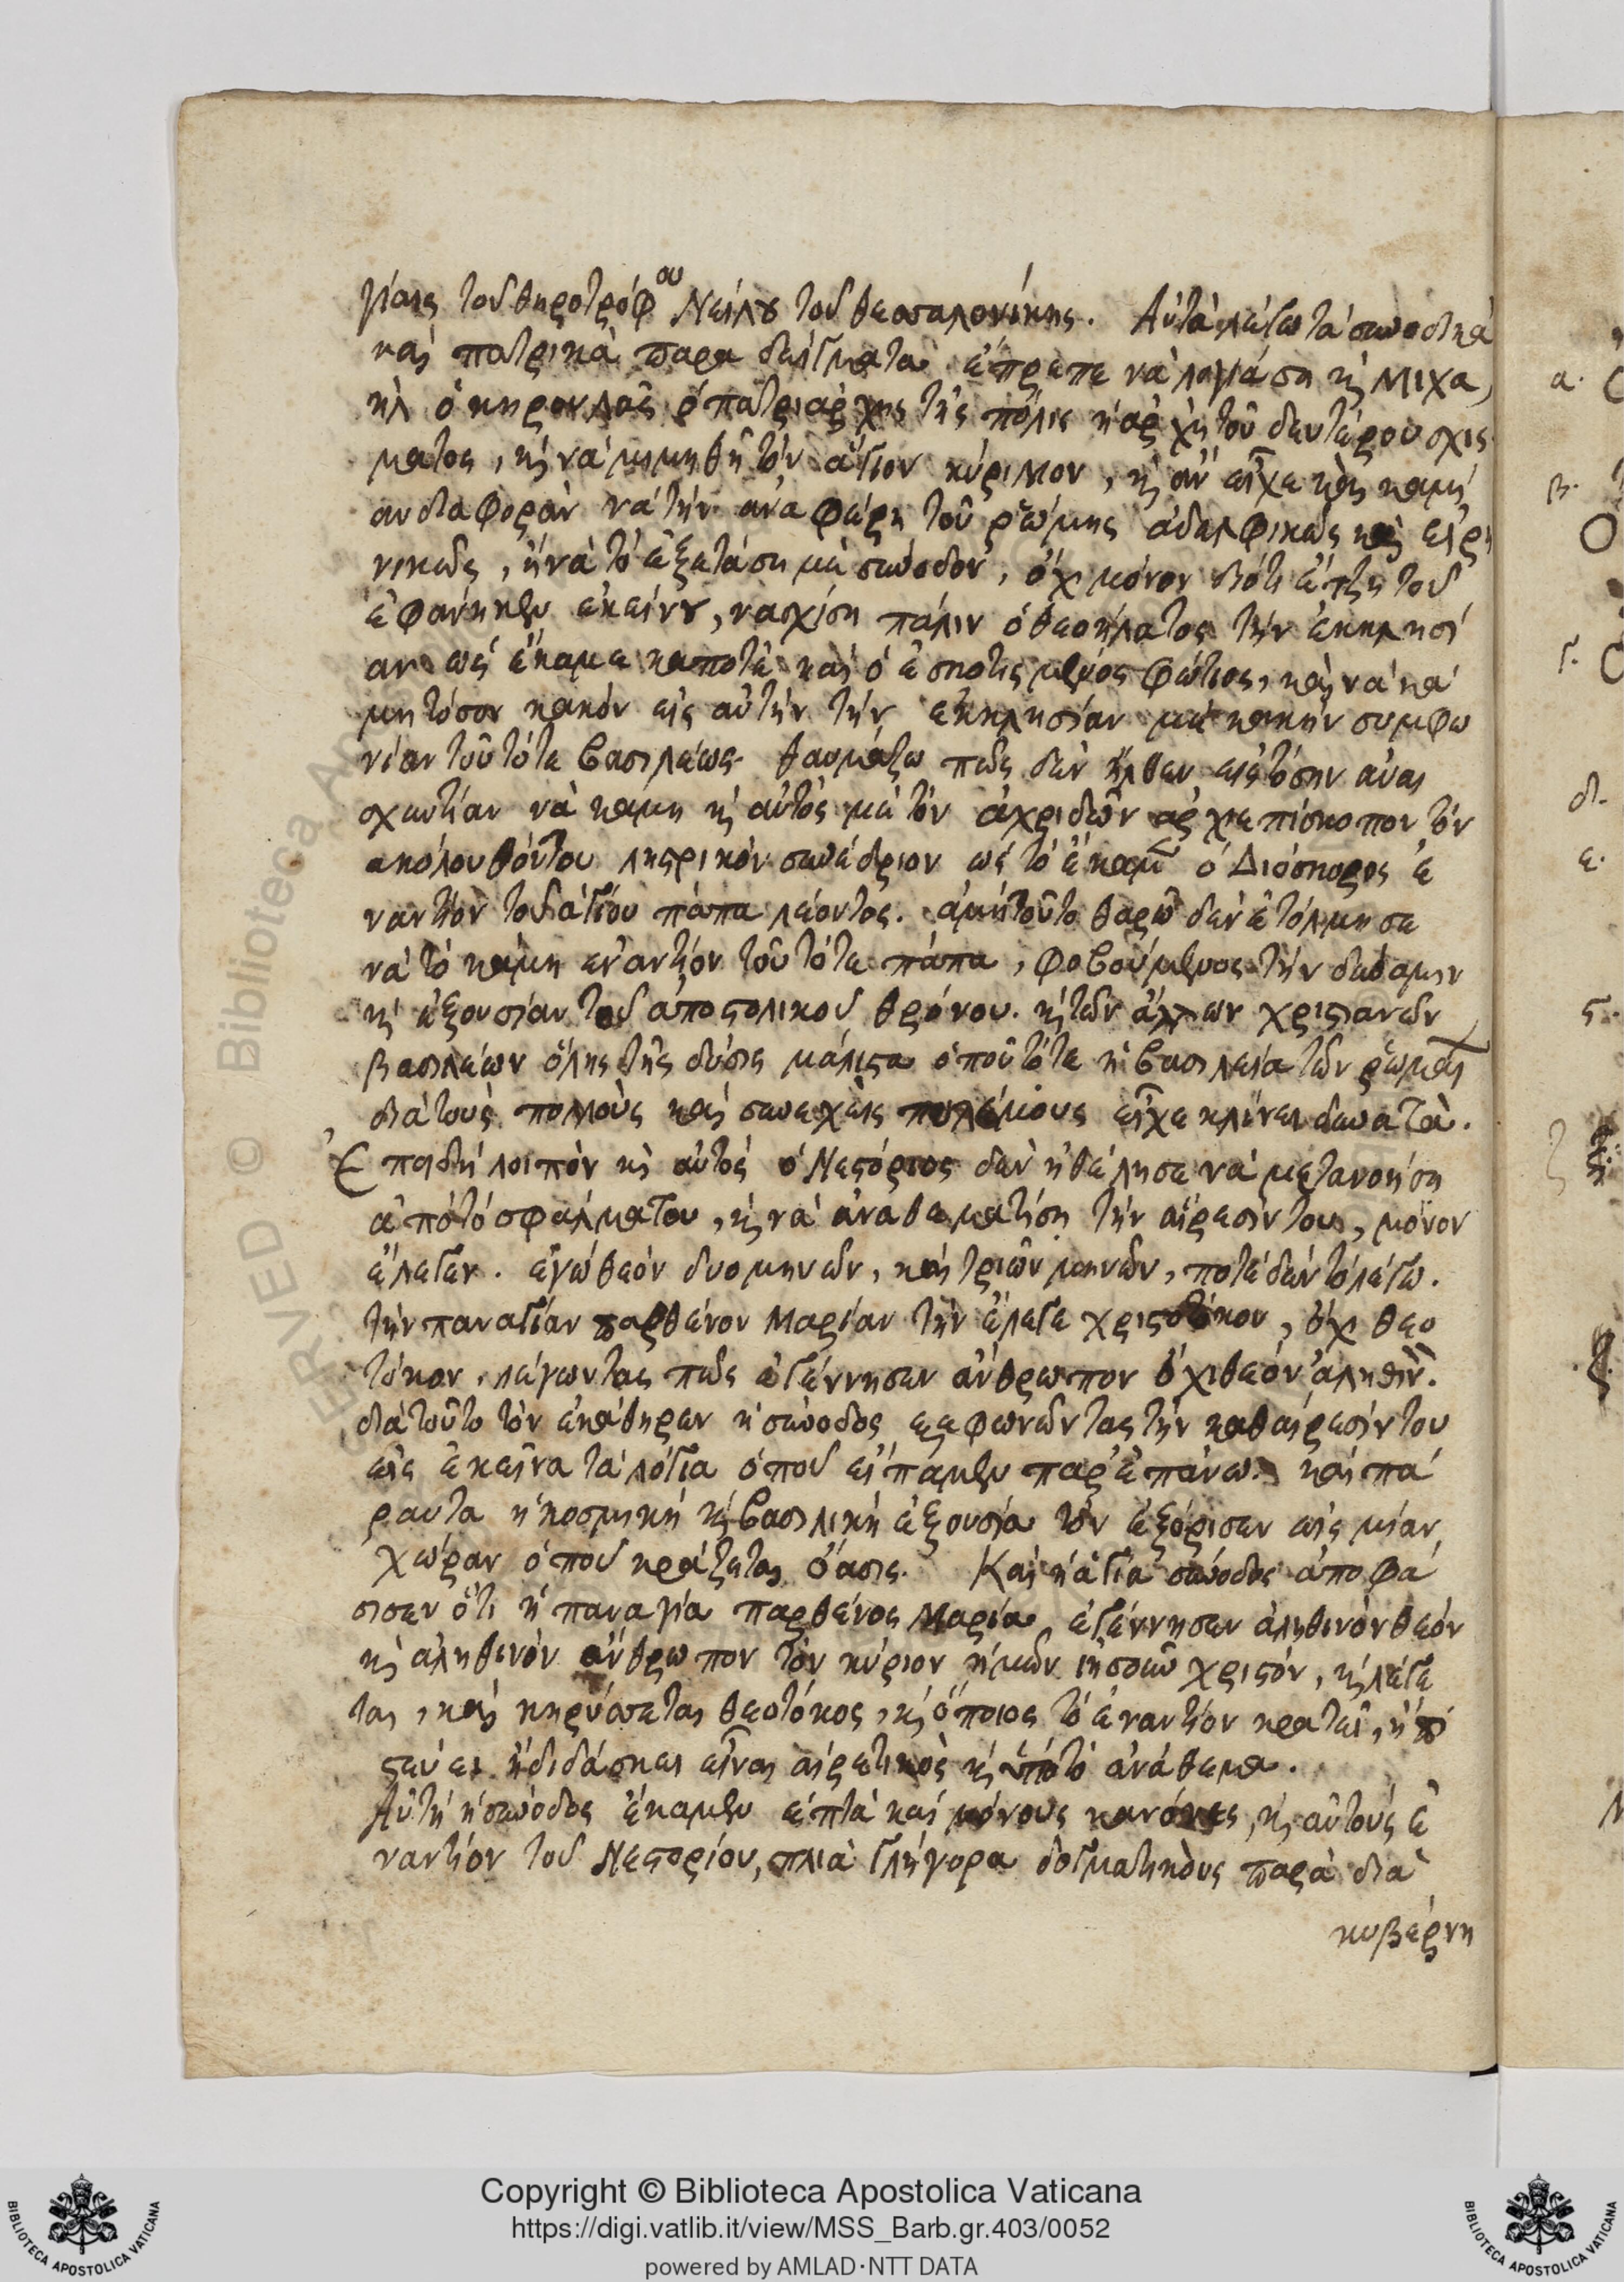 γίαις τοῦ θηροτρόφου Νείλου τοῦ θεσσαλονίκης. Αὐτὰ λέγω τὰ συνοδικὰ
καὶ πατρικὰ παραδείγματα ἔπρεπε νὰ λογιάση κὶ Μιχα
ὴλ ὁ κηρουλὸς ὁ πατριάρχης τῆς πόλις ἡ ἀρχὴ τοῦ δευτέρου σχισ
ματος, κὶ νὰ μιμηθῆ τὸν ἅγιον κύριλλον, κὶ ἂν εἶχε καὶ καμί
αν διαφορὰν νὰ τὴν ἀναφέρη τοῦ ῥώμης ἀδελφικῶς καὶ εἰρη
νικῶς, ἢ νὰ τὸ ἐξετάση μὲ σύνοδον, ὄχι μόνον διότι ἔτζη τοῦ
ἐφάνηκεν ἐκείνου, νὰ σχίση πάλιν ὁ θεοήλατος τὴν ἐκκλησί
αν ὡς ἔκαμε καποτὲ καὶ ὁ ἐσκοτισμένος Φώτιος, καὶ νὰ κά
μη τόσον κακὸν εἰς αὐτὴν τὴν ἐκκλησίαν μὲ κακὴν συμφω
νίαν τοῦ τότε βασιλέως. θαυμάζω πῶς δὲν ἦλθεν εἰς τόσην ἀναι
σχυντίαν νὰ κάμη κὶ αὐτὸς μὲ τὸν ἀχριδῶν ἀρχιεπίσκοπον τὸν
ἀκόλουθόν του ληρικὸν συνέδριον ὡς τὸ ἔκαμε ὁ Διόσκορος ἐ
ναντίον τοῦ ἁγίου πάπα λέοντος. ἀμὴ τοῦτο θαρῶ δὲν ἐτόλμησε
νὰ τὸ κάμη ἐναντίον τοῦ τότε πάπα, φοβούμενος τὴν δύναμιν
κὶ ἐξουσίαν τοῦ ἀποστολικοῦ θρόνου. κὶ τῶν ἄλλων χριστιανῶν
βασιλέων ὅλης τῆς δύσις μάλιστα ὁποῦ τότε ἡ βασιλεία τῶν ῥωμαί
διὰ τοὺς πολλοὺς καὶ συνεχεῖς πολέμους εἶχε κλίνει δυνατὰ.
Ἐπειδὴ λοιπὸν κὶ αὐτὸς ὁ Νεστόριος δὲν ἠθέλησε νὰ μετανοήση
ἀπὸ τὸ σφάλμα του, κὶ νὰ ἀναθεματίση τὴν αἵρεσίν του, μόνον
ἔλεγεν. ἐγὼ θεὸν δυομηνῶν, καὶ τριῶν μηνῶν, ποτὲ δὲν τὸ λέγω.
τὴν παναγίαν παρθένον Μαρίαν τὴν ἔλεγε χριστοτόκον, ὄχι θεο
τόκον, λέγωντας πῶς ἐγέννησεν ἄνθρωπον ὄχι θεὸν ἀληθινόν.
διὰ τοῦτο τὸν ἐκάθηρεν ἡ σύνοδος ἐξεφωνῶντας τὴν καθαίρεσίν του
εἰς ἐκεῖνα τὰ λόγια ὁποῦ εἴπαμεν παρεπάνω. καὶ πά
ραυτα ἡ κοσμικὴ κὶ βασιλικὴ ἐξουσία τὸν ἐξόρισεν εἰς μίαν
χώραν ὁποῦ κράζεται ὄασις. Καὶ ἡ ἁγία σύνοδος ἀποφά
σισεν ὅτι ἡ παναγία παρθένος Μαρία ἐγέννησεν ἀληθινὸν θεὸν
κὶ ἀληθινὸν ἄνθρωπον τὸν κύριον ἡμῶν ἰησοῦν χριστόν, κὶ λέγε
ται, καὶ κηρύσσεται θεοτόκος, κὶ ὅποιος τὸ ἐναντίον κρατεῖ, ἢ πι
στεύει ἢ διδάσκει εἶναι αἱρετικὸς κὶ ὑπὸ τὸ ἀνάθεμα.
Αὐτὴ ἡ σύνοδος ἔκαμεν ἑπτὰ καὶ μόνους κανόνες, κὶ αὐτοὺς ἐ
ναντίον τοῦ Νεστορίου, πλιὰ γλήγορα δογματικοὺς παρὰ διὰ
κυβέρνη